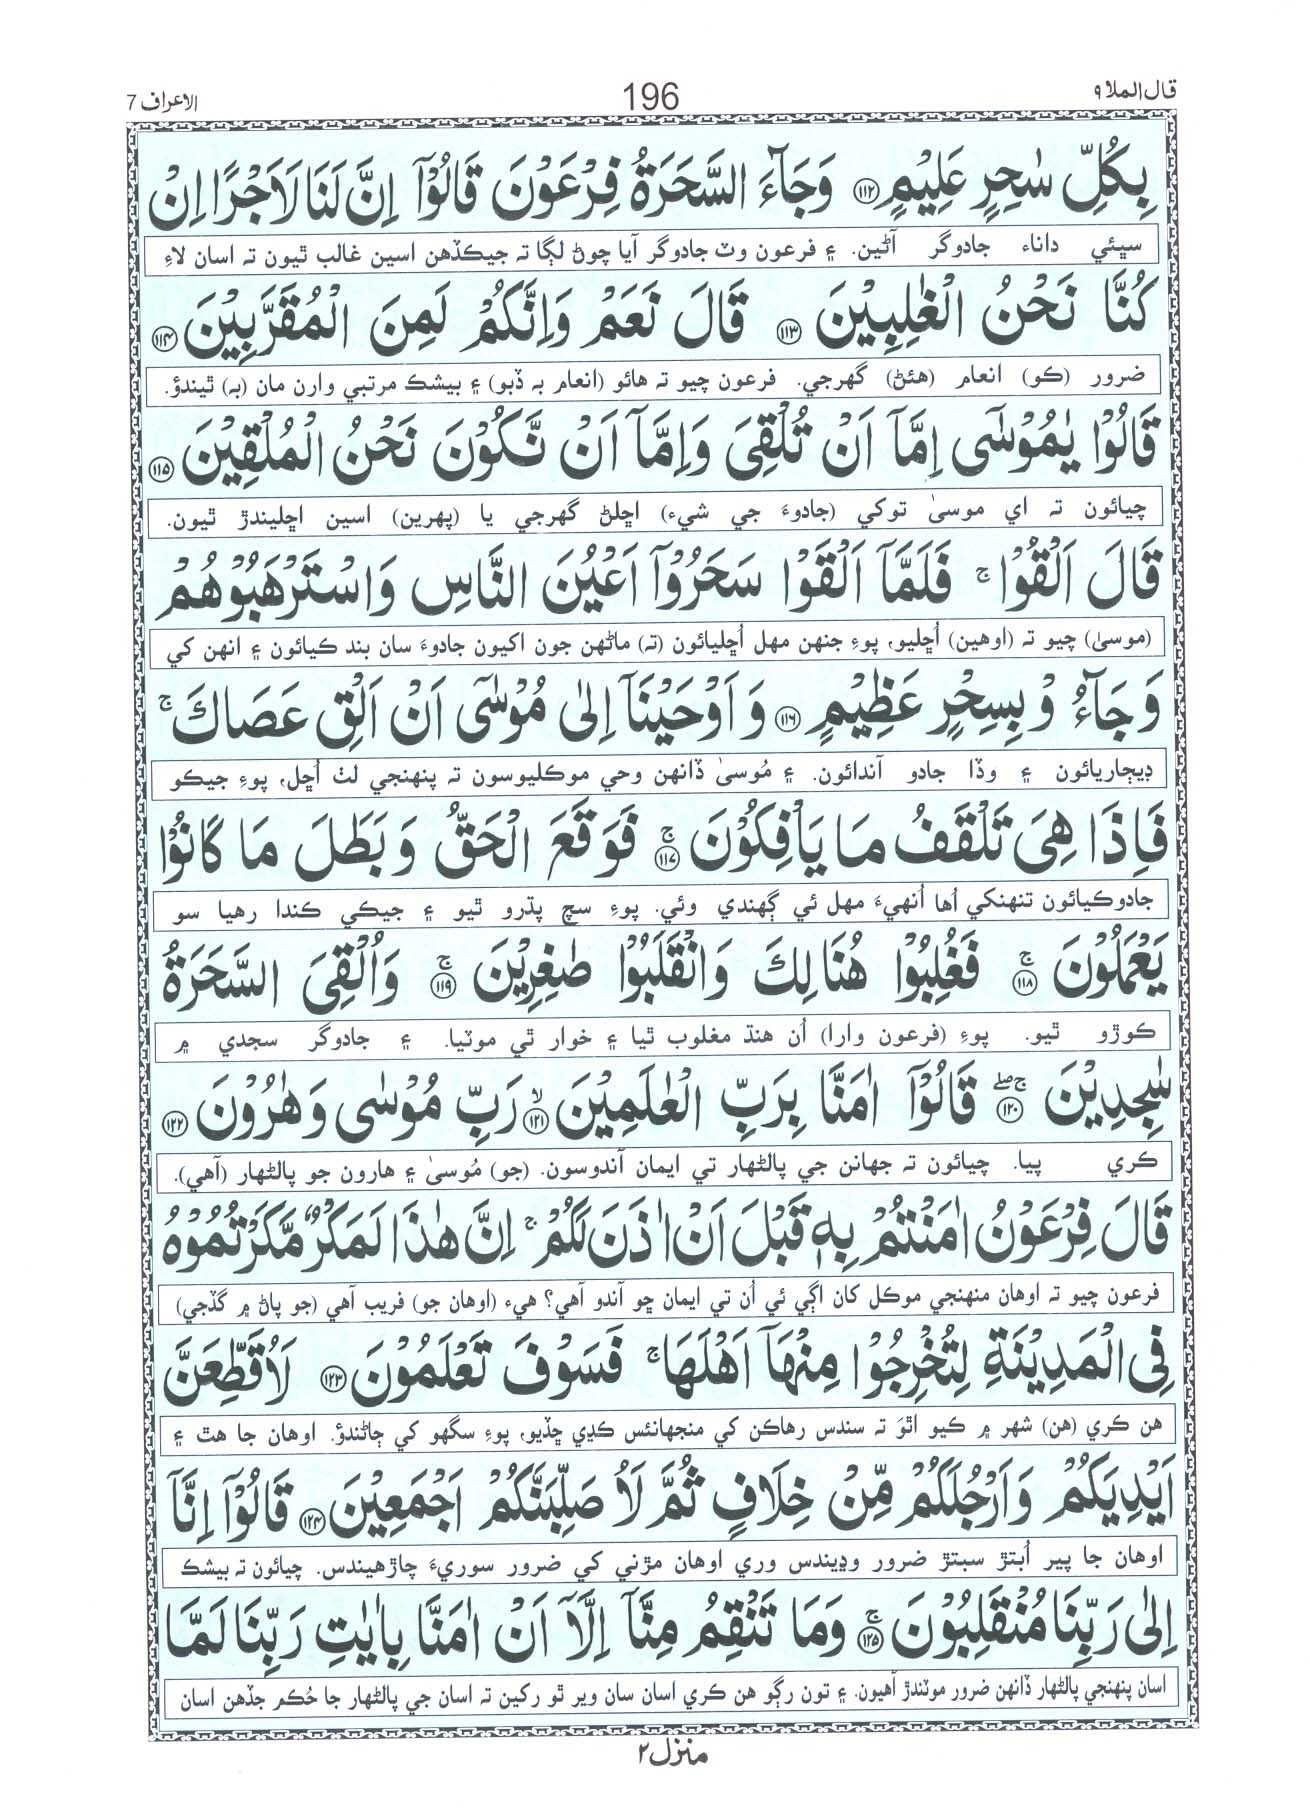 قال الملا ٩ 196 الاعراف 7
بِكُلِّ سٰحِرٍ عَلِيْمٍ ﴿۱۱۲﴾ وَجَآءَ السَّحَرَةُ فِرْعَوْنَ قَالُوْٓا اِنَّ لَنَا لَاَجْرًا اِنْ
سڀئي داناء جادوگر آڻين. ۽ فرعون وٽ جادوگر آيا چوڻ لڳا ته جيڪڏهن اسين غالب ٿيون ته اسان لاءِ
كُنَّا نَحْنُ الْغٰلِبِيْنَ ﴿۱۱۳﴾ قَالَ نَعَمْ وَاِنَّكُمْ لَمِنَ الْمُقَرَّبِيْنَ ﴿۱۱۴﴾
ضرور (ڪو) انعام (هئڻ) گهرجي. فرعون چيو ته هائو (انعام به ڏبو) ۽ بيشڪ مرتبي وارن مان (به) ٿيندؤ.
قَالُوْا يٰمُوْسٰٓى اِمَّآ اَنْ تُلْقِيَ وَاِمَّآ اَنْ نَّكُوْنَ نَحْنُ الْمُلْقِيْنَ ﴿۱۱۵﴾
چيائون ته اي موسىٰ توکي (جادوءَ جي شيء) اڇلڻ گهرجي يا (پهرين) اسين اڇليندڙ ٿيون.
قَالَ اَلْقُوْا ۚ فَلَمَّآ اَلْقَوْا سَحَرُوْٓا اَعْيُنَ النَّاسِ وَاسْتَرْهَبُوْهُمْ
(موسىٰ) چيو ته (اوهين) اُڇليو، پوءِ جنهن مهل اُڇليائون (ته) ماڻهن جون اکيون جادوءَ سان بند ڪيائون ۽ انهن کي
وَجَآءُوْ بِسِحْرٍ عَظِيْمٍ ﴿۱۱۶﴾ وَاَوْحَيْنَآ اِلٰى مُوْسٰٓى اَنْ اَلْقِ عَصَاكَ ۚ
ڊيڄاريائون ۽ وڏا جادو آندائون. ۽ مُوسىٰ ڏانهن وحي موڪليوسون ته پنهنجي لٺ اُڇل، پوءِ جيڪو
فَاِذَا هِيَ تَلْقَفُ مَا يَاْفِكُوْنَ ﴿۱۱۷﴾ ۚ فَوَقَعَ الْحَقُّ وَبَطَلَ مَا كَانُوْا
جادوڪيائون تنهنکي اُها اُنهيءَ مهل ئي ڳهندي وئي. پوءِ سچ پڌرو ٿيو ۽ جيڪي ڪندا رهيا سو
يَعْمَلُوْنَ ﴿۱۱۸﴾ ۚ فَغُلِبُوْا هُنَالِكَ وَانْقَلَبُوْا صٰغِرِيْنَ ﴿۱۱۹﴾ ۚ وَاُلْقِيَ السَّحَرَةُ
ڪوڙو ٿيو. پوءِ (فرعون وارا) اُن هنڌ مغلوب ٿيا ۽ خوار ٿي موٽيا. ۽ جادوگر سجدي ۾
سٰجِدِيْنَ ﴿۱۲۰﴾ ۚۖ قَالُوْٓا اٰمَنَّا بِرَبِّ الْعٰلَمِيْنَ ﴿۱۲۱﴾ ۙ رَبِّ مُوْسٰى وَهٰرُوْنَ ﴿۱۲۲﴾
ڪري پيا. چيائون ته جهانن جي پالڻهار تي ايمان آندوسون. (جو) مُوسىٰ ۽ هارون جو پالڻهار (آهي).
قَالَ فِرْعَوْنُ اٰمَنْتُمْ بِهٖ قَبْلَ اَنْ اٰذَنَ لَكُمْ ۚ اِنَّ هٰذَا لَمَكْرٌ مَّكَرْتُمُوْهُ
فرعون چيو ته اوهان منهنجي موڪل کان اڳي ئي اُن تي ايمان ڇو آندو آهي؟ هيء (اوهان جو) فريب آهي (جو پاڻ ۾ گڏجي)
فِى الْمَدِيْنَةِ لِتُخْرِجُوْا مِنْهَآ اَهْلَهَا ۚ فَسَوْفَ تَعْلَمُوْنَ ﴿۱۲۳﴾ لَاُقَطِّعَنَّ
هن ڪري (هن) شهر ۾ ڪيو اٿوَ ته سندس رهاڪن کي منجهانئس ڪڍي ڇڏيو، پوءِ سگهو کي ڄاڻندؤ. اوهان جا هٿ ۽
اَيْدِيَكُمْ وَاَرْجُلَكُمْ مِّنْ خِلَافٍ ثُمَّ لَاُصَلِّبَنَّكُمْ اَجْمَعِيْنَ ﴿۱۲۴﴾ قَالُوْٓا اِنَّآ
اوهان جا پير اُبتڙ سبتڙ ضرور وڍيندس وري اوهان مڙني کي ضرور سوريءَ چاڙهيندس. چيائون ته بيشڪ
اِلٰى رَبِّنَا مُنْقَلِبُوْنَ ﴿۱۲۵﴾ ۚ وَمَا تَنْقِمُ مِنَّآ اِلَّآ اَنْ اٰمَنَّا بِاٰيٰتِ رَبِّنَا لَمَّا
اسان پنهنجي پالڻهار ڏانهن ضرور موٽندڙ آهيون. ۽ تون رڳو هن ڪري اسان سان وير ٿو رکين ته اسان جي پالڻهار جا حُڪم جڏهن اسان
منزل ٢